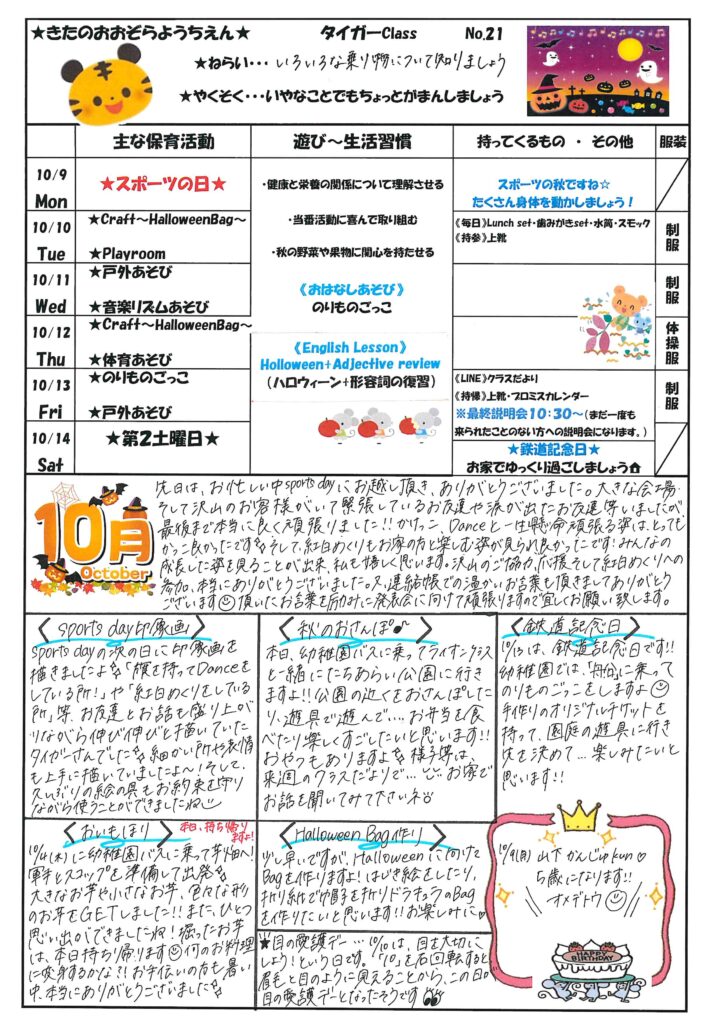 ★きたのおおぞらようちえん★ タイガーClass No.21
★ねらい・・・いろいろな乗り物について知りましょう
★やくそく・・・いやなことでもちょっとがまんしましょう
主な保育活動 遊び～生活習慣 持ってくるもの ・ その他 服装
10/9
Mon
★スポーツの日★
スポーツの秋ですね☆
たくさん身体を動かしましょう！
10/10
Tue
★Craft～HalloweenBag～
★Playroom
《毎日》Lunch set・歯みがきset・水筒・スモック
《持参》上靴
制服
10/11
Wed
★戸外あそび
★音楽リズムあそび
制服
10/12
Thu
★Craft～HalloweenBag～
★体育あそび
体操服
10/13
Fri
★のりものごっこ
★戸外あそび
《LINE》クラスだより
《持帰》上靴・プロミスカレンダー
※最終説明会10：30～（まだ一度も
来られたことのない方への説明会になります。）
制服
10/14
Sat
★第2土曜日★
★鉄道記念日★
お家でゆっくり過ごしましょう
・健康と栄養の関係について理解させる
・当番活動に喜んで取り組む
・秋の野菜や果物に関心を持たせる
《おはなしあそび》
のりものごっこ
《English Lesson》
Holloween+Adjective review
（ハロウィーン+形容詞の復習）
10月
October
先日は、お忙しい中sports dayにお越し頂き、ありがとうございました。大きな会場・
そして沢山のお客様がいて緊張しているお友達や涙が出たお友達等いましたが、
最後まで本当に良く頑張りました!!かけっこ、Danceと一生懸命頑張る姿は、とっても
かっこ良かったです そして、紅白めくりもお家の方と楽しむ姿が見られ良かったです！みんなの
成長した姿を見ることが出来、私も嬉しく思います。沢山のご協力、応援そして紅白めくりへの
参加、本当にありがとうございました。又、連絡帳での温かいお言葉も頂きましてありがとう
ございます 頂いたお言葉を励みに発表会に向けて頑張りますので宜しくお願い致します。
〈sports day印象画〉
sports dayの次の日に印象画を
描きましたよ 「旗を持ってDanceを
している所！」や「紅白めくりをしている
所」等、お友達とお話も盛り上が
りながら伸び伸びと描いていた
タイガーさんでした 細かい所や表情
も上手に描いていましたよ～！そして、
久しぶりの絵の具もお約束を守り
ながら使うことができましたね
〈秋のおさんぽ♪〉
本日、幼稚園バスに乗ってライオンクラス
と一緒にたちあらい公園に行き
ますよ!!公園の近くをおさんぽした
り、遊具で遊んで…お弁当を食
べたり楽しくすごしたいと思います!!
おやつもありますよ 様子等は、
来週のクラスだよりで… お家で
お話を聞いてみて下さいネ
〈鉄道記念日〉
10/13は、鉄道記念日です!!
幼稚園では、「船」に乗って
のりものごっこをしますよ
手作りのオリジナルチケットを
持って、園庭の遊具に行き
先を決めて…楽しみたいと
思います!!
〈おいもほり〉 本日、持ち帰り
ますよ！
に幼稚園バスに乗って芋畑へ！
軍手とスコップを準備して出発
大きなお芋や小さなお芋、色々な形
のお芋をGETしました!!また、ひとつ
思い出ができましたね！掘ったお芋
は、本日持ち帰ります 何のお料理
に変身するかな?!お手伝いの方も暑い
中、本当にありがとうございました
〈Halloween Bag作り〉
少し早いですが、Halloweenに向けて
Bagを作りますよ！はじき絵をしたり、
折り紙で帽子を折りドラキュラのBag
を作りたいと思います!!お楽しみに♡
★目の愛護デー…10/10は、目を大切に
しよう！という日です。「10」を右回転すると
眉毛と目のように見えることから、この日が
目の愛護デーとなったそうです
10/9(月) 山下 かんじゅkun♡
5歳になります!!
オメデトウ
HAPPY
BIRTHDAY